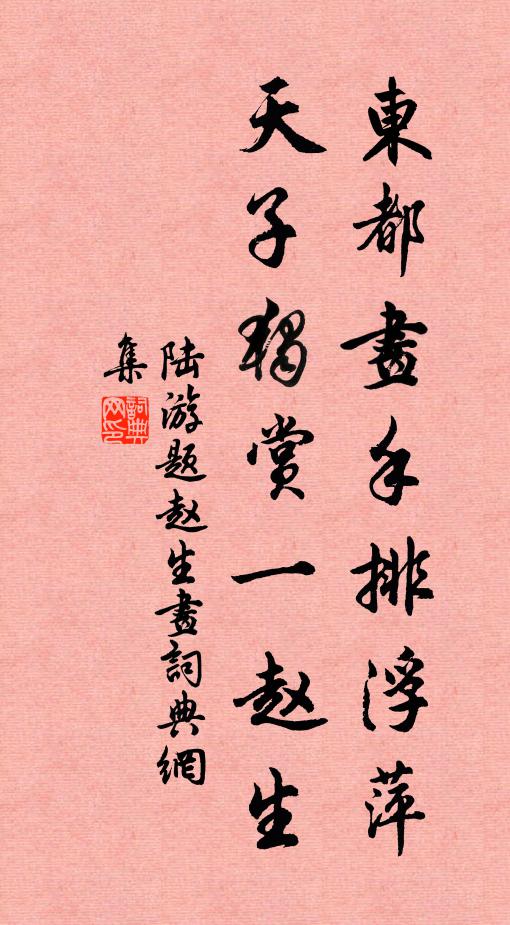 東都畫手排浮萍
天子獨賞一赵生
陆游题赵生畫詞典網
集
詞典网印